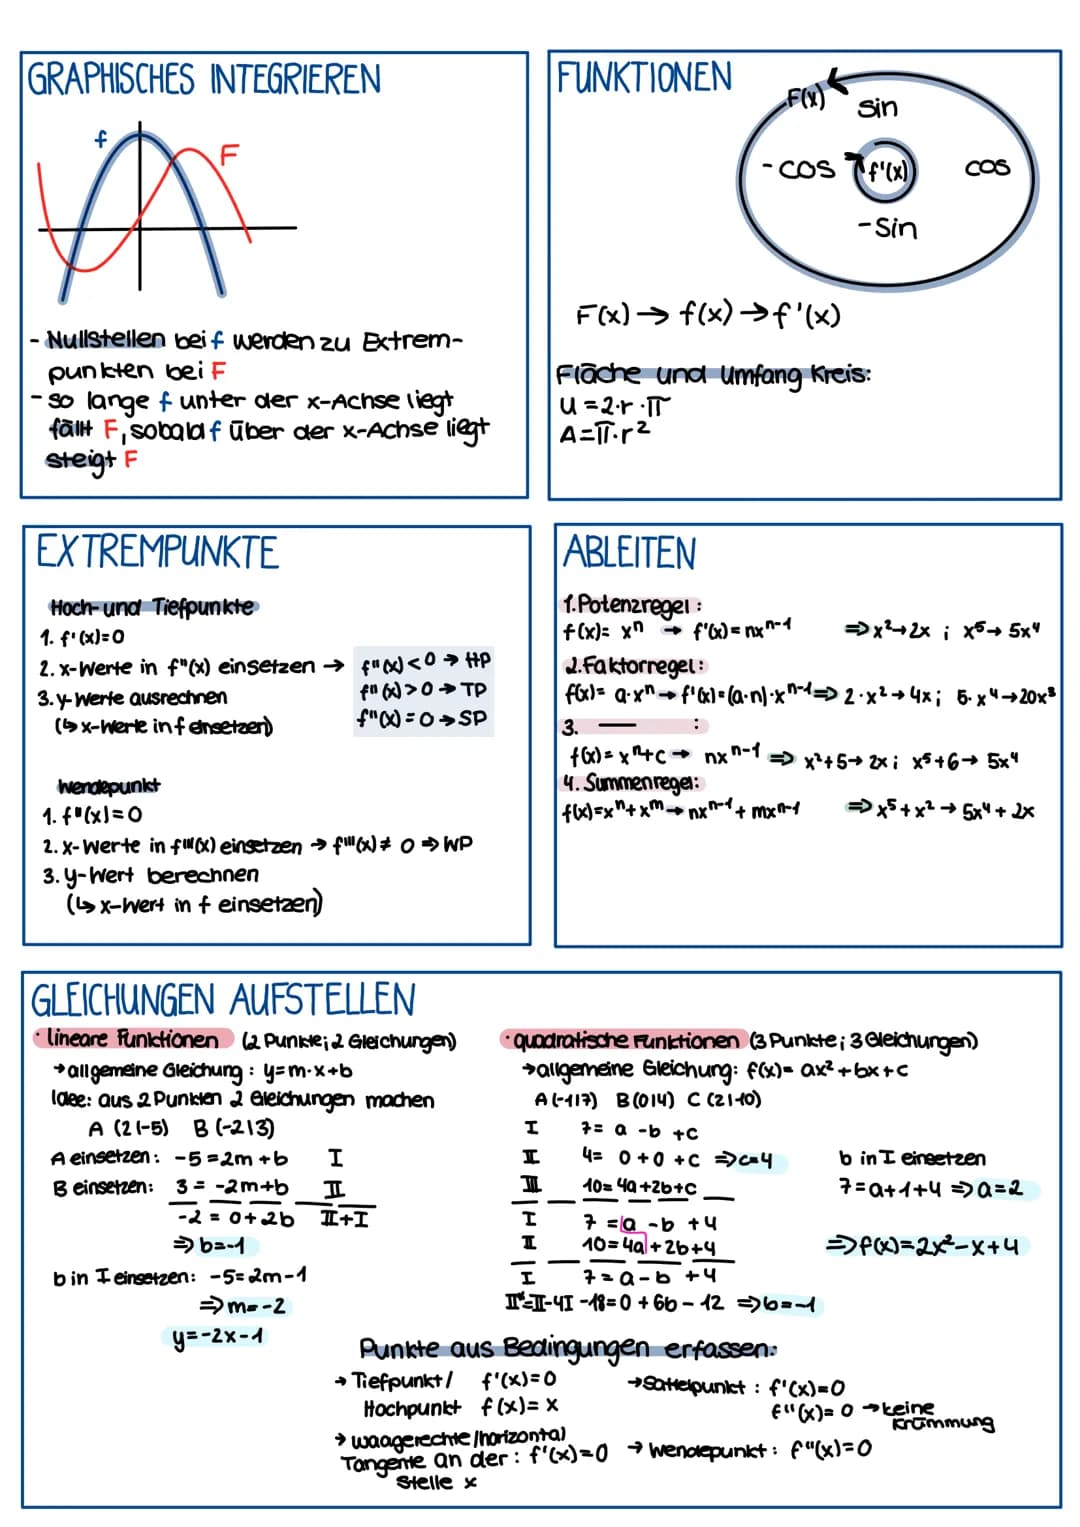 GRAPHISCHES INTEGRIEREN
f
F
- Nullstellen bei f werden zu Extrem-
punkten bei F
- so lange f unter der x-Achse liegt
fällt F, sobald f über der x-Achse liegt
steigt F
FUNKTIONEN
F(x)
sin
-cos
f'(x)
cos
-Sin
F(x) → f(x) → f'(x)
Fläche und Umfang Kreis:
U = 2·r·π
A=π·r²
EXTREMPUNKTE
Hoch- und Tiefpunkte
1. f'(x)=0
2. x-Werte in f"(x) einsetzen →
f"(x) < 0 → HP
f"(x) > 0 → TP
f"(x) = 0 → SP
3. y-Werte ausrechnen
(↳ x-Werte in f einsetzen)
Wendepunkt
1. f"(x)=0
2. x-Werte in f'''(x) einsetzen → f'''(x) ≠ 0 ⇒ WP
3. y-Wert berechnen
(↳ x-Wert in f einsetzen)
ABLEITEN
1. Potenzregel:
f(x)= xⁿ → f'(x) = nxⁿ⁻¹ ⇒ x²→2x ; x⁵→ 5x⁴
2. Faktorregel:
f(x)= a·xⁿ → f'(x)=(a·n)·xⁿ⁻¹ ⇒ 2·x²→4x; 5·x⁴→20x³
3. — :
f(x) = xⁿ+c → nxⁿ⁻¹ ⇒ x²+5→ 2x ; x⁵+6→ 5x⁴
4. Summenregel:
f(x)=xⁿ+xᵐ → nxⁿ⁻¹ + mxⁿ⁻¹ ⇒ x⁵+x² → 5x⁴+ 2x
GLEICHUNGEN AUFSTELLEN
· lineare Funktionen (2 Punkte; 2 Gleichungen)
→ allgemeine Gleichung: y=m·x+b
Idee: aus 2 Punkten 2 Gleichungen machen
A (2|-5) B (-2|3)
A einsetzen: -5=2m+b I
B einsetzen: 3 = -2m+b II
-2 = 0+2b II+I
⇒ b=-1
b in I einsetzen: -5=2m-1
⇒ m=-2
y=-2x-1
· quadratische Funktionen (3 Punkte; 3 Gleichungen)
→ allgemeine Gleichung: f(x)= ax²+bx+c
A(-1|7) B(0|4) C (2|-10)
I 7= a -b +c
II 4= 0+0 +c ⇒ c=4
III 10=4a+2b+c
I 7 = a -b +4
II 10=4a+2b+4
I 7=a-b +4
II*=II-4I -18=0 +6b-12 ⇒ b=-1
b in I einsetzen
7=a+1+4 ⇒ a=2
⇒ f(x)=2x²-x+4
Punkte aus Bedingungen erfassen:
→ Tiefpunkt/ f'(x)=0
Hochpunkt f(x)= x
→ waagerechte/horizontal
Tangente an der: f'(x)=0
Stelle x
→ Sattelpunkt: f'(x)=0
f"(x)= 0 → keine
Krümmung
→ Wendepunkt: f"(x)=0